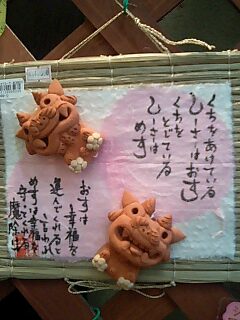 くちをあけている
しーさーはおす
くちを
とじている
しーさーは
めす
おすは
幸福を
運んでくれると
言われ
めすは幸福を
守ってくれる
魔除け